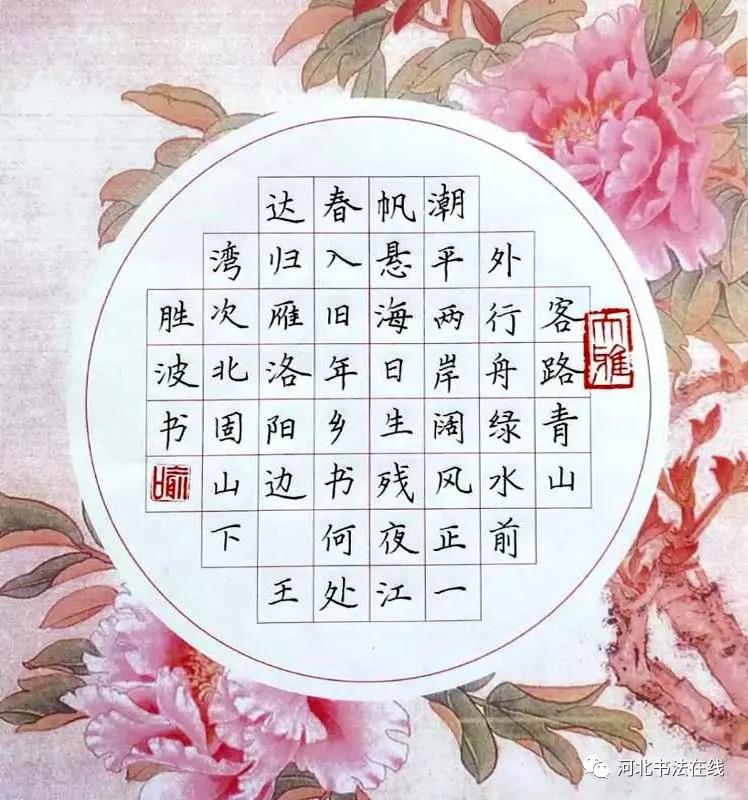 客路青山
外行舟绿水前
潮平两岸阔风正一
帆悬海日生残夜江
春入旧年乡书何处
达归雁洛阳边 王
湾次北固山下
胜波书
大雅
河北书法在线